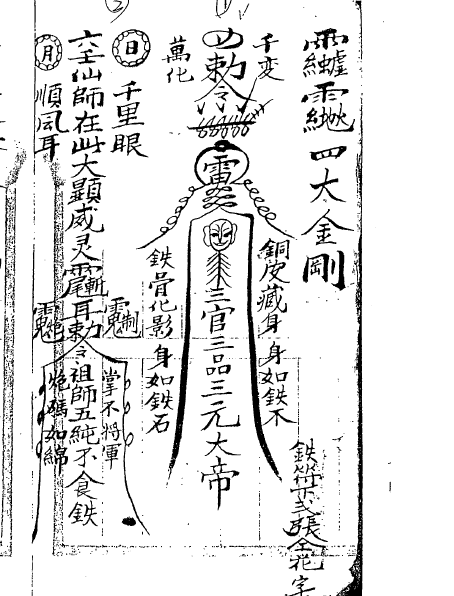 四大金剛
千変
萬化
勅令
雷
三官三品三元大帝
銅皮藏身身如鉄不
鉄骨化影身如鉄石
日 千里眼
月 順風耳
六壬仙師在此大顕威灵
耳勅令祖師五純不食鉄
掌不将軍
如綿
鉄符弍張全花字